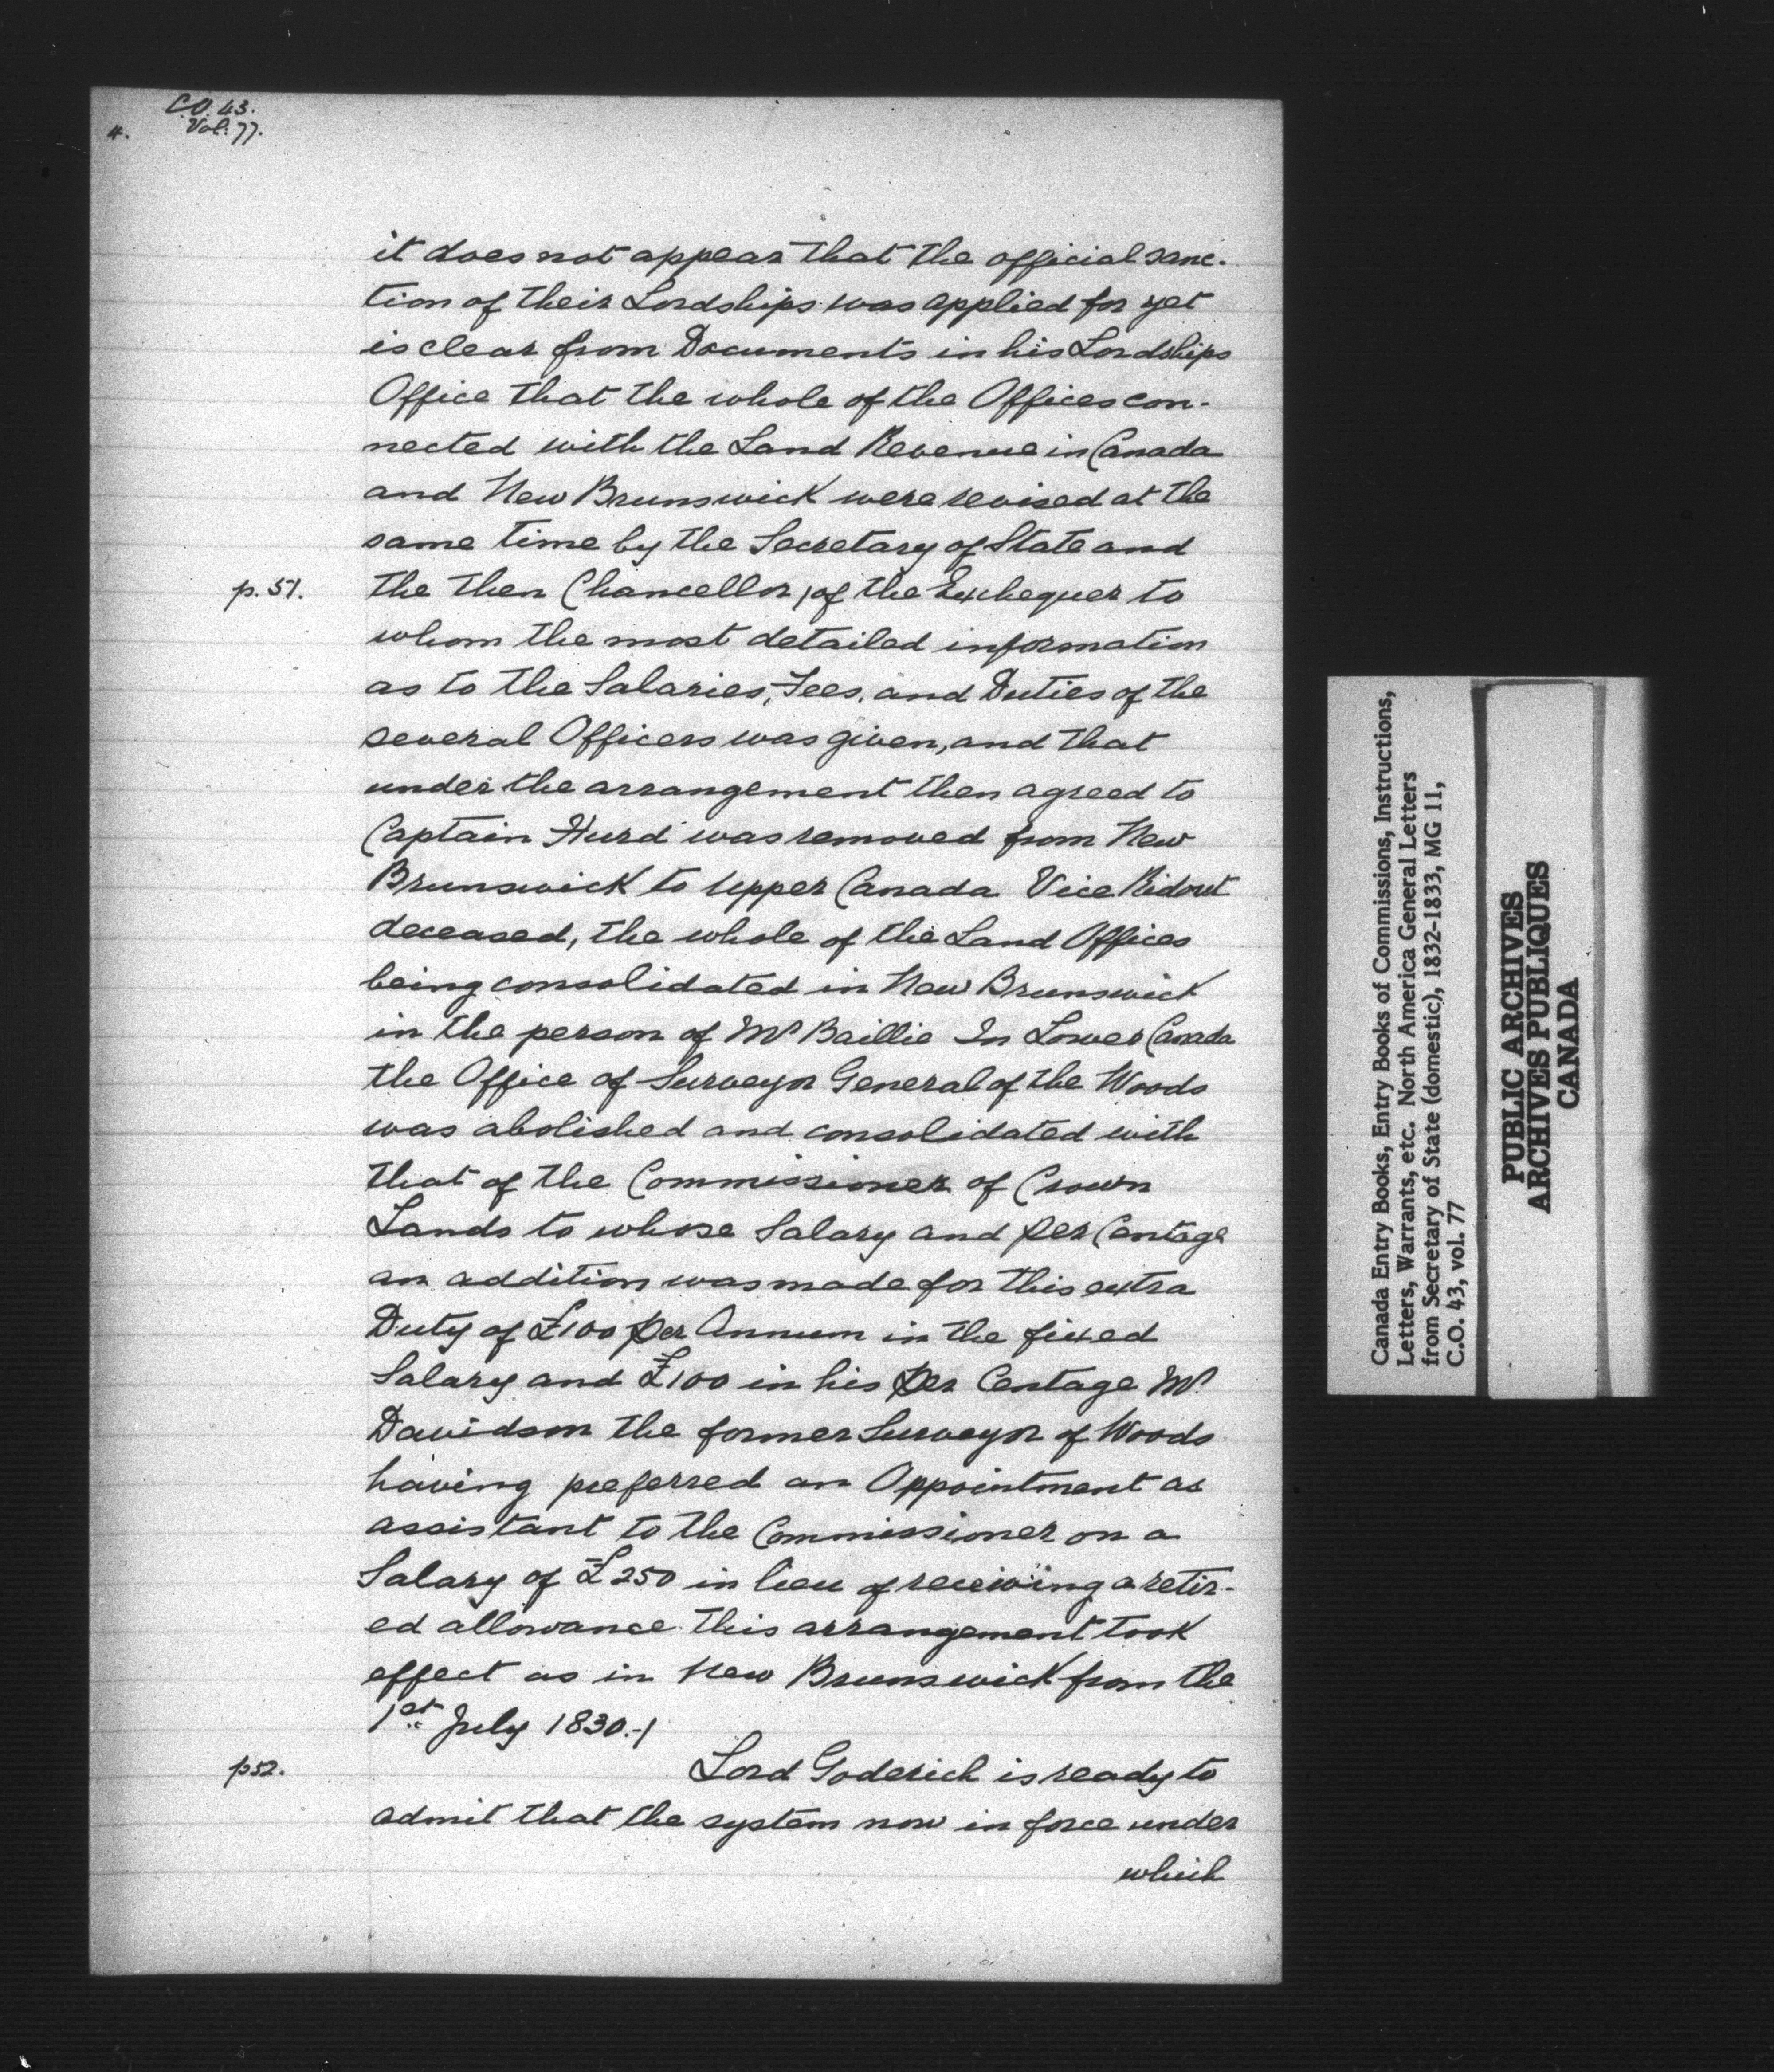 C.O. 43.
4. Vol. 77.
it does not appear that the official sanc-
tion of their Lordships was applied for yet
is clear from Documents in his Lordships
Office that the whole of the Offices con-
nected with the Land Revenue in Canada
and New Brunswick were revised at the
same time by the Secretary of State and
p. 51. the then Chancellor, of the Exchequer to
whom the most detailed information
as to the Salaries, Fees, and Duties of the
several Officers was given, and that
under the arrangement then agreed to
Captain Hurd was removed from New
Brunswick to Upper Canada Vice Ridout
deceased, the whole of the Land Offices
being consolidated in New Brunswick
in the person of Mr Baillie In Lower Canada
the Office of Surveyor General of the Woods
was abolished and consolidated with
that of the Commissioner of Crown
Lands to whose Salary and per Centage
an addition was made for this extra
Duty of £100 per Annum in the fixed
Salary and £100 in his per Centage Mr.
Davidson the former Surveyor of Woods
having preferred an Appointment as
assistant to the Commissioner on a
Salary of £250 in lieu of receiving a retir-
ed allowance this arrangement took
effect as in New Brunswick from the
1st July 1830.-/
p52. Lord Goderich is ready to
admit that the system now in force under
which
Canada Entry Books, Entry Books of Commissions, Instructions,
Letters, Warrants, etc. North America General Letters
from Secretary of State (domestic), 1832-1833, MG 11,
C.O. 43, vol. 77
PUBLIC ARCHIVES
ARCHIVES PUBLIQUES
CANADA